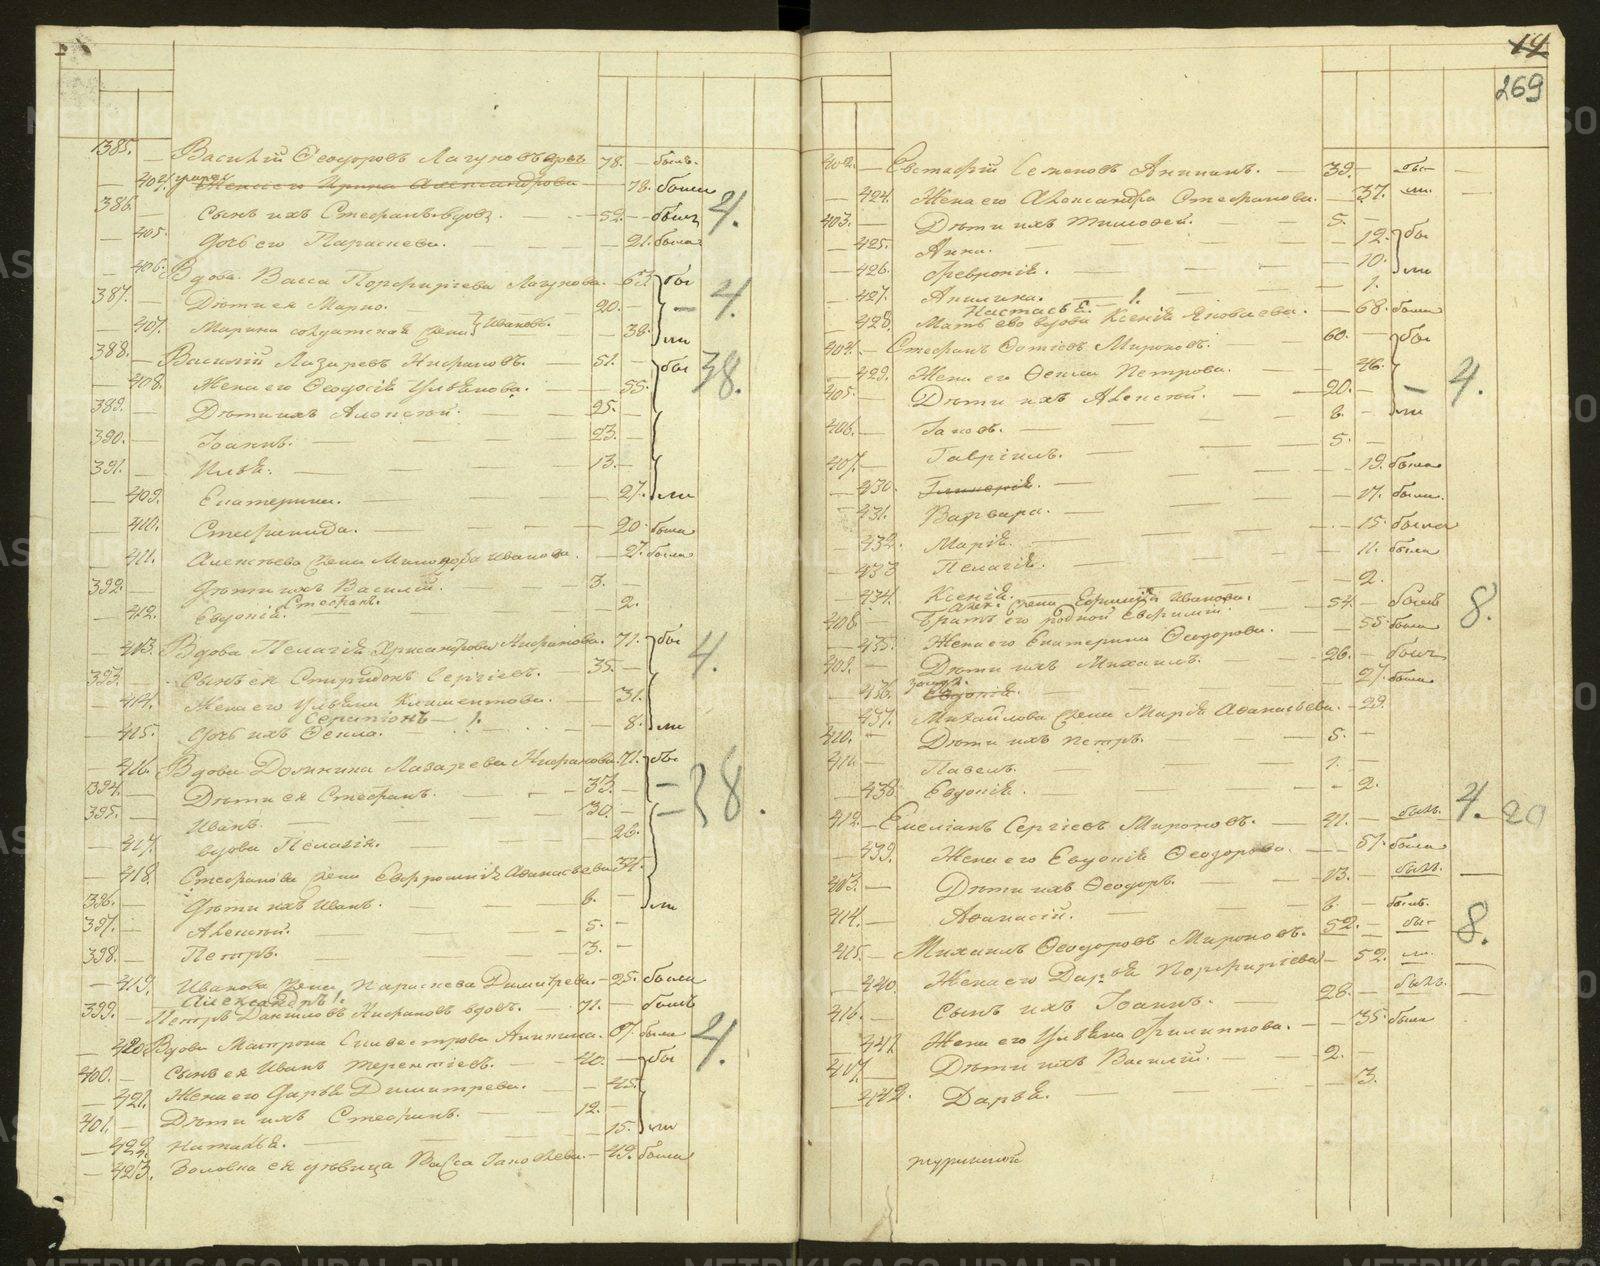 14
269
1385. Василий Ѳеодоровъ Лагуновъ 78. былъ.
404. умре Жена его Ирина Александрова 78. была
386. Сынъ ихъ Стефанъ вдов. 52. былъ 4.
405. Дочь его Параскева. 21. была
406. Вдова Васса Порфирьева Лагунова. 63. бы
387. Дѣти ея Марко. 20. 4.
407. Марина солдатская жена Иванова. 38. ли
388. Василий Лазаревъ 51. бы 38.
408. Жена его Ѳеодосія Ульянова. 55.
389. Дѣти ихъ Алексѣй. 25.
390. Іоаннъ. 23.
391. Илья. 13.
409. Екатерина. 27. ли
410. Стефанида. 20. была
411. Алексѣева жена Иванова. 27. была
392. Дѣти ихъ Василій. 3.
Стефанъ.
412. Евдокія. 2.
413. Вдова Пелагія 71. бы 4.
393. Сынъ ея Спиридонъ Сергіевъ. 35.
414. Жена его Климентова. 31.
Серапіонъ 1.
415. Дочь ихъ Ѳекла. 8. ли
416. Вдова Домникия Лазарева 71. бы
394. Дѣти ея Стефанъ. 33. 38.
395. Иванъ. 30.
417. вдова Пелагія. 26.
418. Стефанова жена Евфросинія Аѳанасьева 34.
396. Дѣти ихъ Иванъ. 6. ли
397. Алексѣй. 5.
398. Петръ. 3.
419. Иванова жена Параскева Димитрева. 25. была
Александръ 1.
399. Петръ Даниловъ вдовъ. 71. былъ
420. Вдова Матрона Сильвестрова Аникина. 67. была 4.
400. Сынъ ея Иванъ Терентіевъ. 40. бы
421. Жена его Дарья Димитрева. 45.
401. Дѣти ихъ Стефанъ. 12.
422. Наталья. 15. ли
423. Золовка ея дѣвица Васса Іаковлева. 49. была
402. Евстафій Семеновъ Аникинъ. 39. бы
424. Жена его Александра Стефанова. 37. ли
403. Дѣти ихъ Тимоѳей. 5.
425. Анна. 12. бы
426. Февронія. 10. ли
427. Акилина. 1.
Настасья. 1.
428. Мать его вдова Ксенія Яковлева. 68. была
404. Стефанъ Фотіевъ Мироновъ. 60. бы
429. Жена его Ѳекла Петрова. 46. 4.
405. Дѣти ихъ Алексѣй. 20.
406. Іаковъ. 6. ли
407. Гавріилъ. 5.
430. Гликерія. 19. была
431. Варвара. 17. была.
432. Марія. 15. была
433. Пелагія. 11. была
434. Ксенія. 2.
жена Иванова.
408. Братъ его родной Евфимій. 54. былъ 8.
435. Жена его Екатерина Ѳеодорова. 55. была
409. Дѣти ихъ Михаилъ. 26. былъ
436. Евдокія. 21. была
437. Михайлова жена Марія Аѳанасьева. 29.
410. Дѣти ихъ Петръ. 5.
411. Павелъ. 1.
438. Евдокія. 2.
412. Емеліанъ Сергіевъ Мироновъ. 41. былъ. 4. 20
439. Жена его Евдокія Ѳеодорова. 51. была
413. Дѣти ихъ Ѳеодоръ. 13. былъ.
414. Аѳанасій. 6. былъ.
415. Михаилъ Ѳеодоровъ Мироновъ. 52. бы 8.
440. Жена его Дарья Порфиріева 52. ли.
416. Сынъ ихъ Іоаннъ. 28. былъ.
441. Жена его Ульяна Филиппова. 35. была
417. Дѣти ихъ Василій. 2.
442. Дарья. 3.